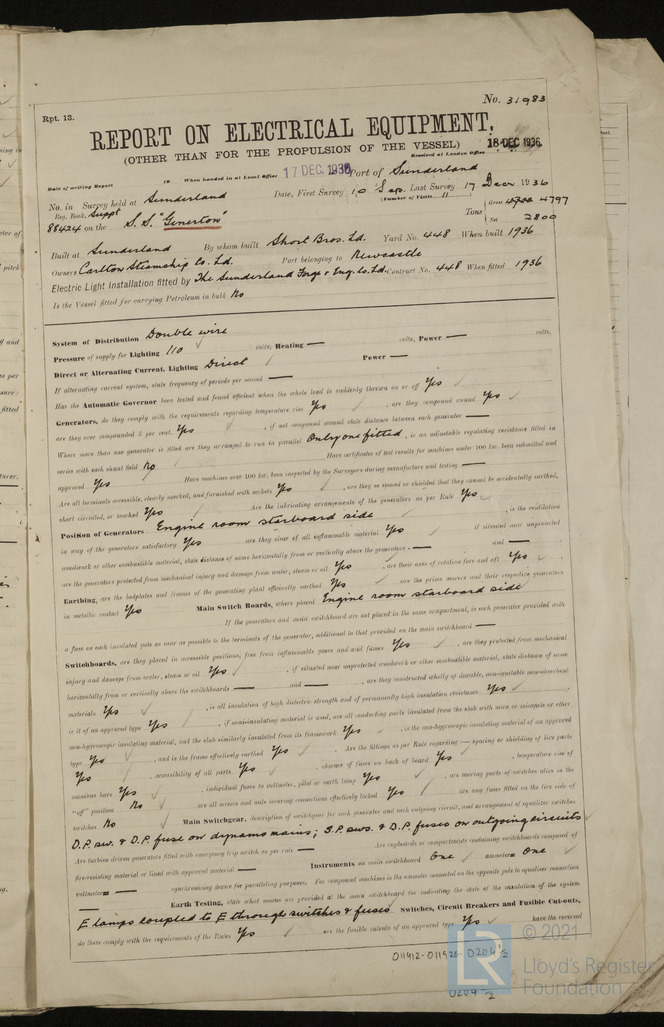 No. 31983
Rpt. 13.
REPORT ON ELECTRICAL EQUIPMENT.
(OTHER THAN FOR THE PROPULSION OF THE VESSEL)
Received at London Office 18 DEC 1936
Date of writing Report 19 When handed in at Local Office 17 DEC. 1936 Port of Sunderland
No. in Survey held at Sunderland Date, First Survey 10 Sep. Last Survey 17 Decr 1936
Reg. Book. Suppt (Number of Visits 11)
88424 on the S.S. "Generton" Tons { Gross 4797
Net 2800
Built at Sunderland By whom built Short Bros. Ld. Yard No. 448 When built 1936
Owners Carlton Steamship Co. Ld. Port belonging to Newcastle
Electric Light Installation fitted by The Sunderland Forge & Eng. Co. Ld. Contract No. 448 When fitted 1936
Is the Vessel fitted for carrying Petroleum in bulk No
System of Distribution Double wire
Pressure of supply for Lighting 110 volts, Heating — volts, Power — volts.
Direct or Alternating Current, Lighting Direct Power —
If alternating current system, state frequency of periods per second —
Has the Automatic Governor been tested and found efficient when the whole load is suddenly thrown on or off Yes
Generators, do they comply with the requirements regarding temperature rise Yes , are they compound wound Yes
are they over compounded 5 per cent. Yes , if not compound wound state distance between each generator —
Where more than one generator is fitted are they arranged to run in parallel Only one fitted , is an adjustable regulating resistance fitted in
series with each shunt field No Have certificates of test results for machines under 100 kw. been submitted and
approved Yes Have machines over 100 kw. been inspected by the Surveyors during manufacture and testing —
Are all terminals accessible, clearly marked, and furnished with sockets Yes , are they so spaced or shielded that they cannot be accidentally earthed,
short circuited, or touched Yes Are the lubricating arrangements of the generators as per Rule Yes
Position of Generators Engine room starboard side , is the ventilation
in way of the generators satisfactory Yes are they clear of all inflammable material Yes if situated near unprotected
woodwork or other combustible material, state distance of same horizontally from or vertically above the generators — and —
are the generators protected from mechanical injury and damage from water, steam or oil Yes , are their axes of rotation fore and aft Yes
Earthing, are the bedplates and frames of the generating plant efficiently earthed Yes are the prime movers and their respective generators
in metallic contact Yes Main Switch Boards, where placed Engine room starboard side
If the generators and main switchboard are not placed in the same compartment, is each generator provided with
a fuse on each insulated pole as near as possible to the terminals of the generator, additional to that provided on the main switchboard —
Switchboards, are they placed in accessible positions, free from inflammable gases and acid fumes Yes , are they protected from mechanical
injury and damage from water, steam or oil Yes , if situated near unprotected woodwork or other combustible material, state distance of same
horizontally from or vertically above the switchboards — and — , are they constructed wholly of durable, non-ignitable non-absorbent
materials Yes , is all insulation of high dielectric strength and of permanently high insulation resistance Yes
is it of an approved type Yes , if semi-insulating material is used, are all conducting parts insulated from the slab with mica or micanite or other
non-hygroscopic insulating material, and the slab similarly insulated from its framework Yes , is the non-hygroscopic insulating material of an approved
type Yes , and is the frame effectively earthed Yes Are the fittings as per Rule regarding:— spacing or shielding of live parts
Yes , accessibility of all parts Yes , absence of fuses on back of board Yes , temperature rise of
omnibus bars Yes , individual fuses to voltmeter, pilot or earth lamp Yes , are moving parts of switches alive in the
"off" position No , are all screws and nuts securing connections effectively locked Yes are any fuses fitted on the live side of
switches No Main Switchgear, description of switchgear for each generator and each outgoing circuit, and arrangement of equalizer switches
D.P. sw. & D.P. fuse on dynamo mains; S.P. sws. & D.P. fuses on outgoing circuits
Are turbine driven generators fitted with emergency trip switch as per rule — Are cupboards or compartments containing switchboards composed of
fire-resisting material or lined with approved material — Instruments on main switchboard One ammeter One
voltmeter — synchronising device for paralleling purposes. For compound machines is the ammeter connected on the opposite pole to equaliser connection
— Earth Testing, state what means are provided at the main switchboard for indicating the state of the insulation of the system
E lamps coupled to E through switches & fuses Switches, Circuit Breakers and Fusible Cut-outs,
do these comply with the requirements of the Rules Yes are the fusible cutouts of an approved type Yes have the reversed
011912-011926-0204 1/2
© 2021
Lloyd's Register
Foundation
0204 2